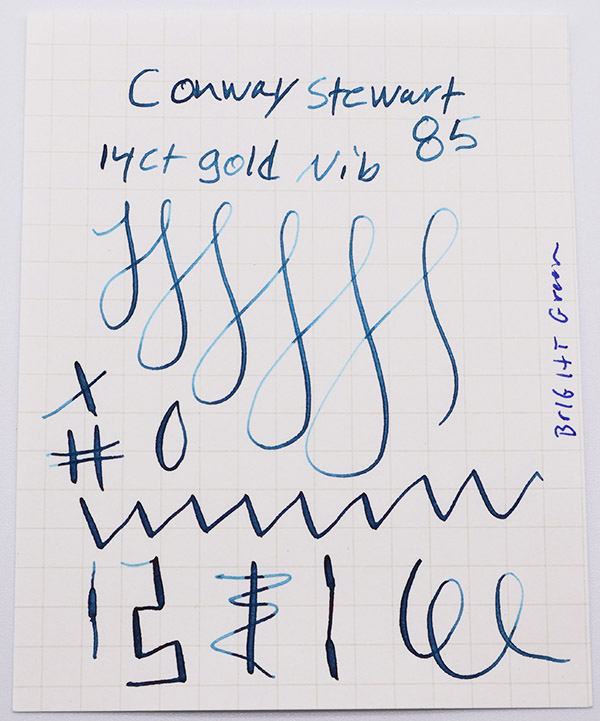 Conway Stewart
85
14ct gold Nib
X
#
0
Bright Green